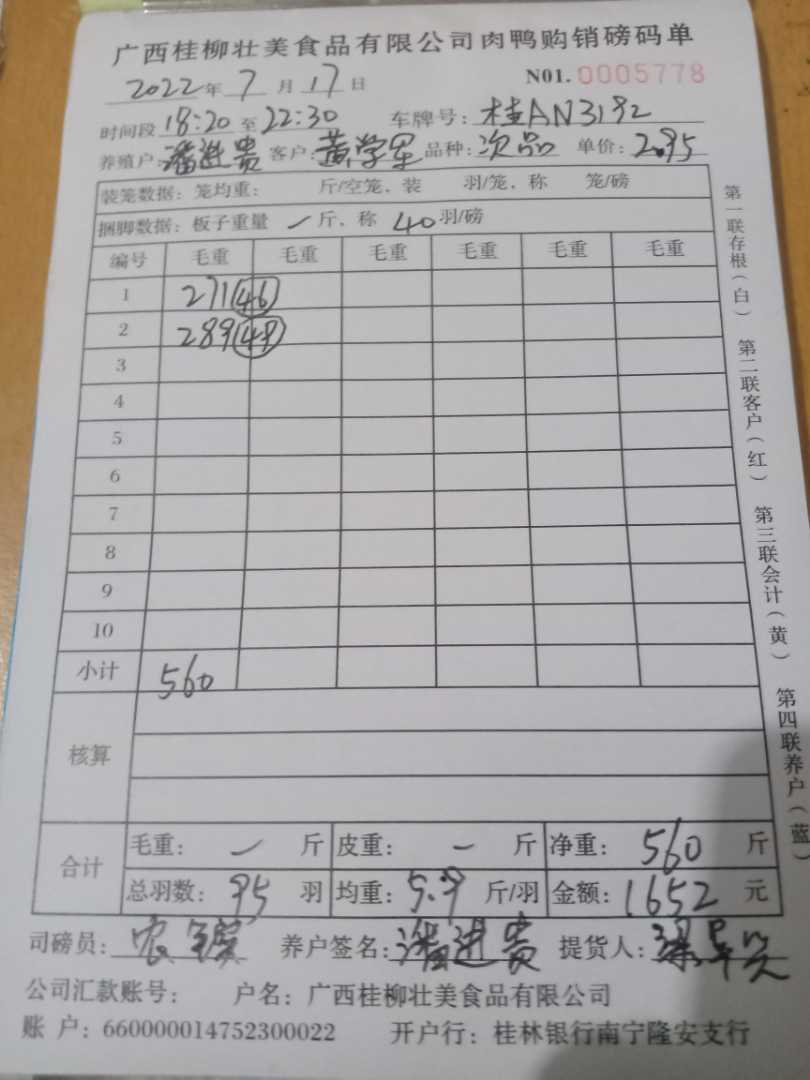 广西桂柳壮美食品有限公司肉鸭购销磅码单
2022年7月17日 N01.0005778
时间段18:20至22:30 车牌号:桂AN3192
养殖户:潘进贵 客户:黄学军 品种:次品 单价:2.95
装笼数据:笼均重: 斤/空笼、装 羽/笼、称 笼/磅
捆脚数据:板子重量 一 斤、称 40羽/磅
编号 毛重 毛重 毛重 毛重 毛重 毛重
1 271(46)
2 289
3
4
5
6
7
8
9
10
小计 560
核算
合计 毛重: 一 斤 皮重: 一 斤 净重: 560 斤
总羽数: 95 羽 均重: 5.9 斤/羽 金额: 1652 元
司磅员: 养户签名:潘进贵 提货人:
公司汇款账号: 户名:广西桂柳壮美食品有限公司
账 户:660000014752300022 开户行:桂林银行南宁隆安支行
第一联存根(白) 第二联客户(红) 第三联会计(黄) 第四联养户(蓝)